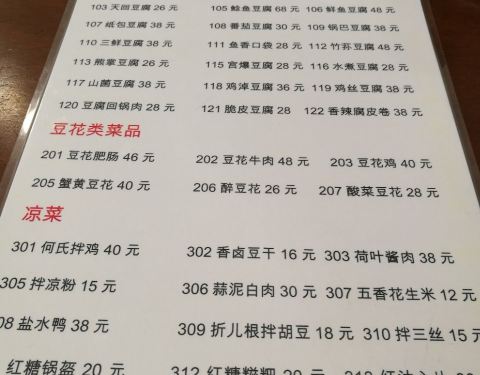 103 天回豆腐 26 元 105 鲶鱼豆腐 68 元 106 鲜鱼豆腐 48 元
107 纸包豆腐 38 元 108 番茄豆腐 30 元 109 锅巴豆腐 38 元
110 三鲜豆腐 38 元 111 鱼香口袋 28 元 112 竹荪豆腐 48 元
113 熊掌豆腐 26 元 115 宫爆豆腐 28 元 116 水煮豆腐 28 元
117 山菌豆腐 38 元 118 鸡淖豆腐 36 元 119 鸡丝豆腐 38 元
120 豆腐回锅肉 28 元 121 脆皮豆腐 28 122 香辣腐皮卷 38 元
豆花类菜品
201 豆花肥肠 46 元 202 豆花牛肉 48 元 203 豆花鸡 40 元
205 蟹黄豆花 40 元 206 醉豆花 26 元 207 酸菜豆花 28 元
凉菜
301 何氏拌鸡 40 元 302 香卤豆干 16 元 303 荷叶酱肉 38 元
305 拌凉粉 15 元 306 蒜泥白肉 30 元 307 五香花生米 12 元
08 盐水鸭 38 元 309 折儿根拌胡豆 18 元 310 拌三丝 15 元
红糖锅盔 20 元 312 红糖糍粑 20 元